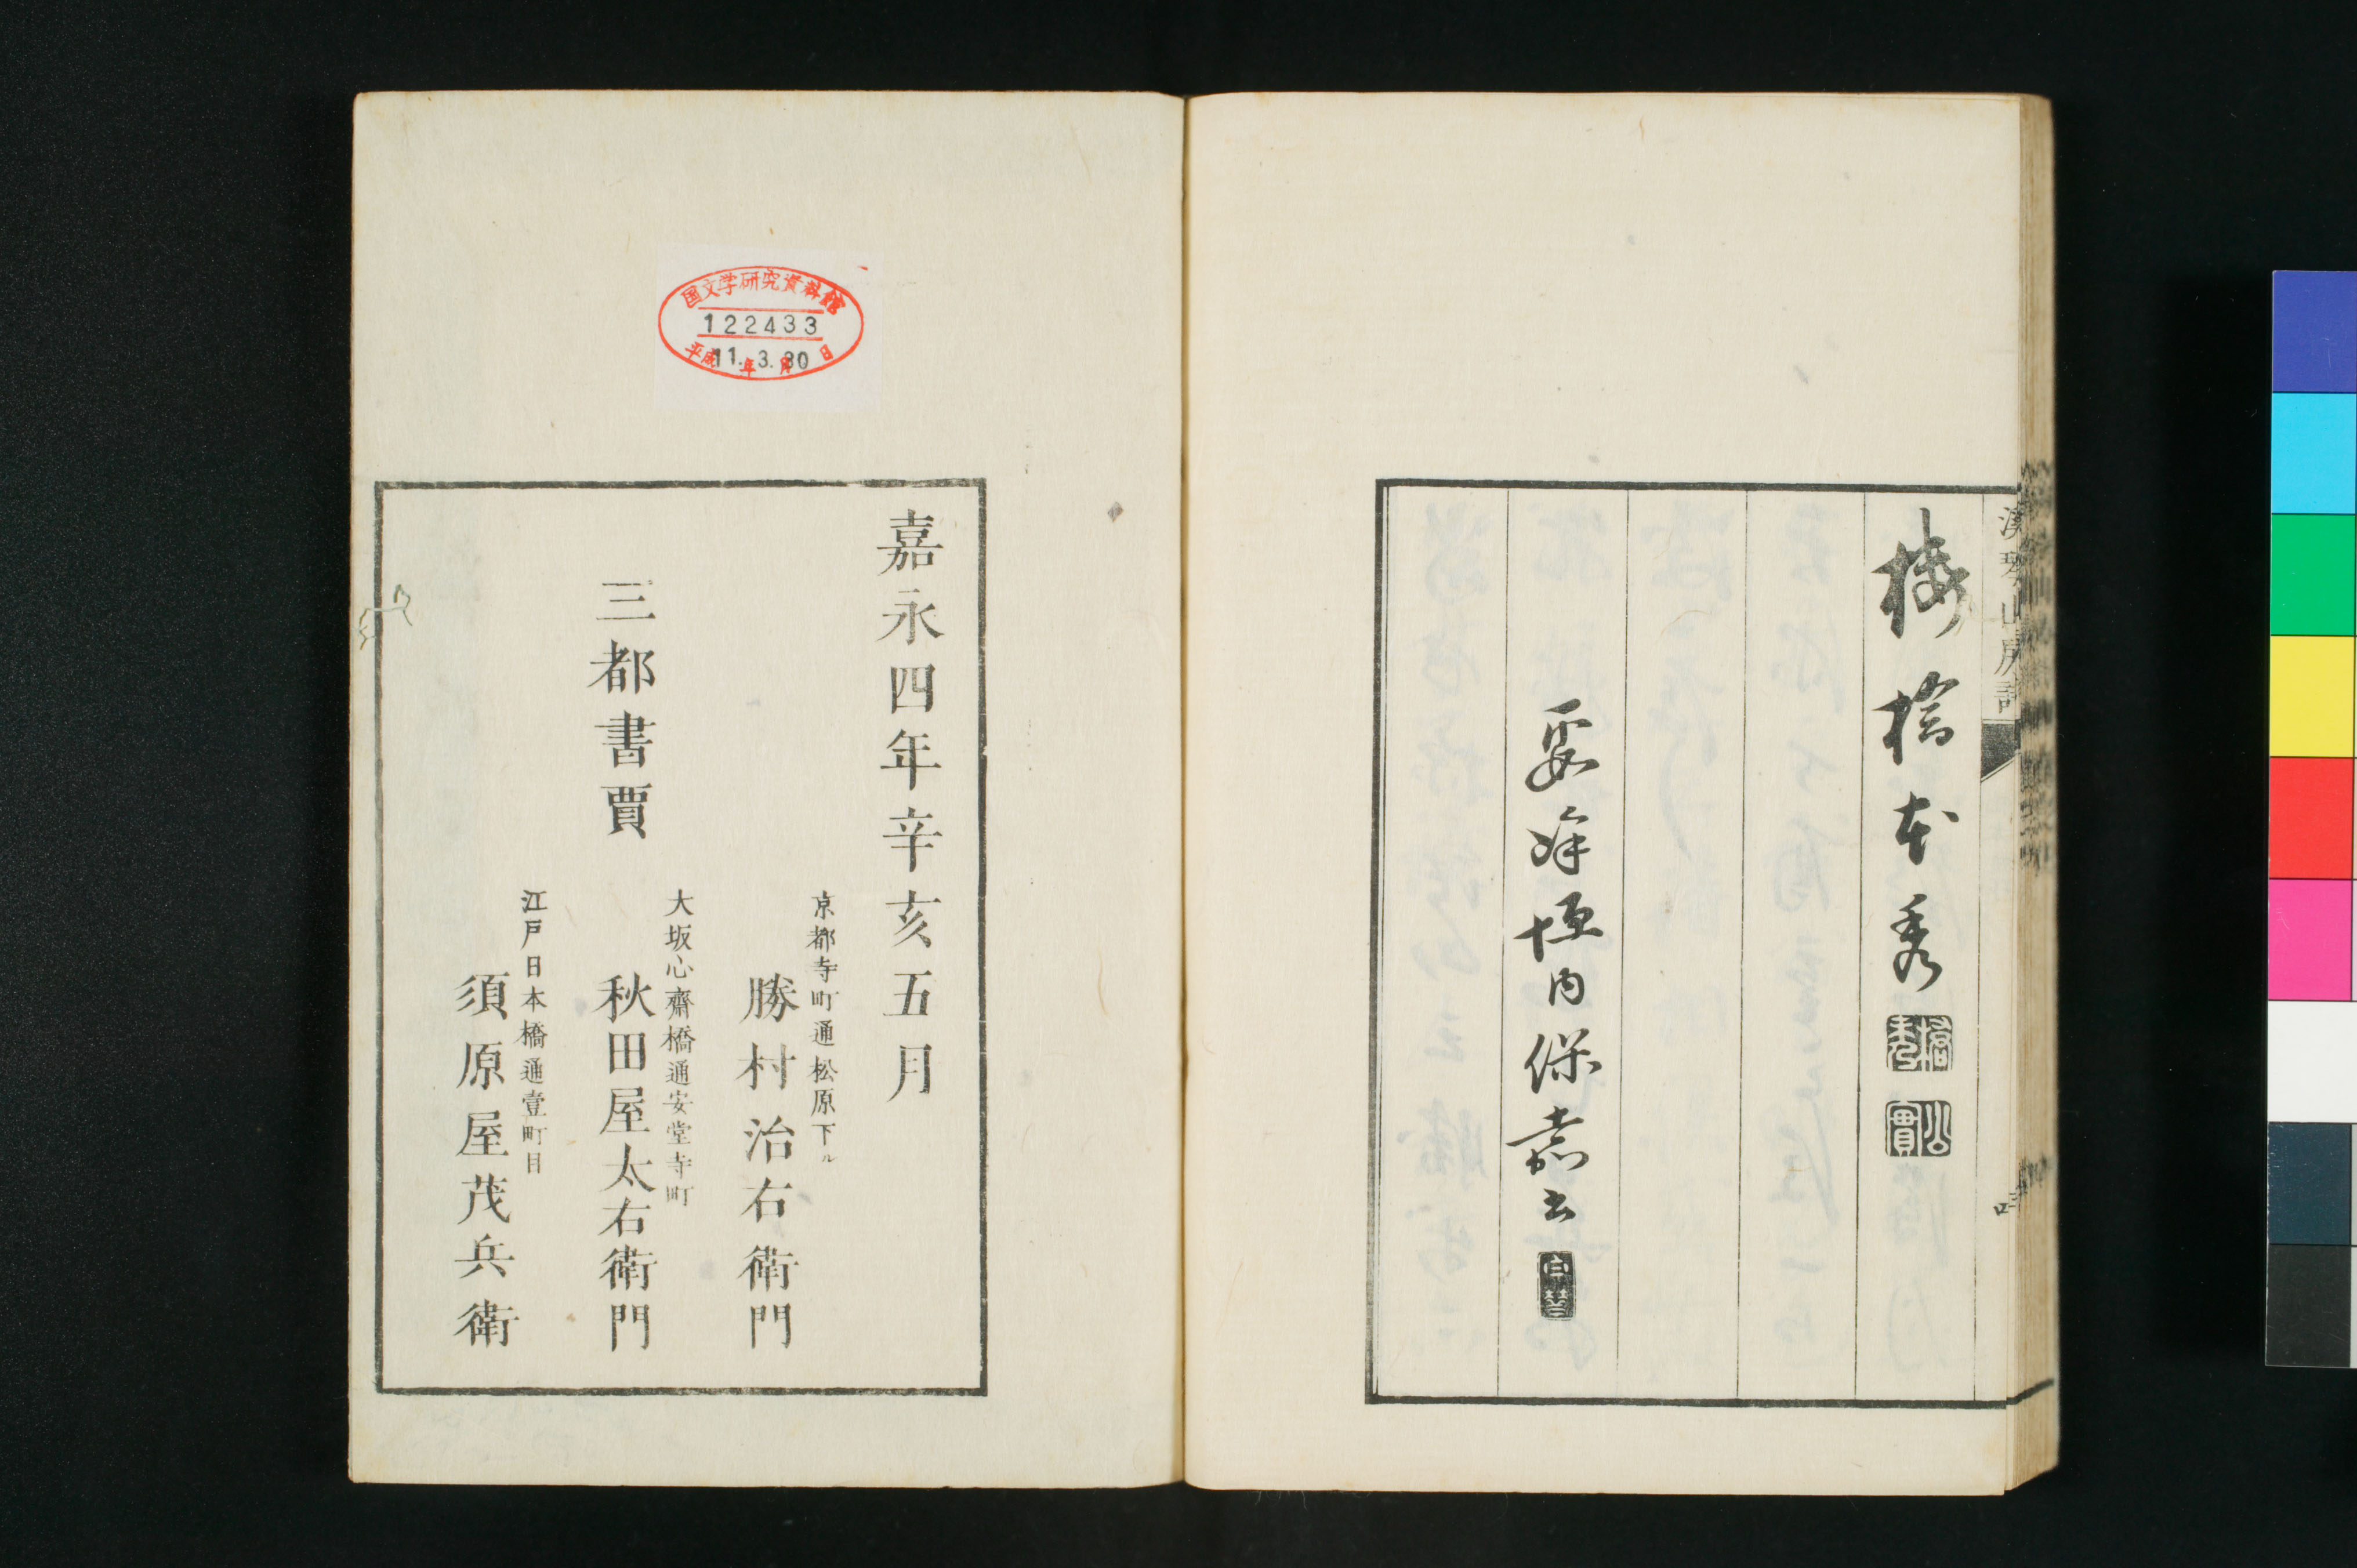 溪琴山房詩
本秀
垣内保嘉書
国文学研究資料館
122433
平成11年3月30日
嘉永四年辛亥五月
京都寺町通松原下ル
勝村治右衛門
三都書賈
大坂心齋橋通安堂寺町
秋田屋太右衛門
江戸日本橋通壹町目
須原屋茂兵衛